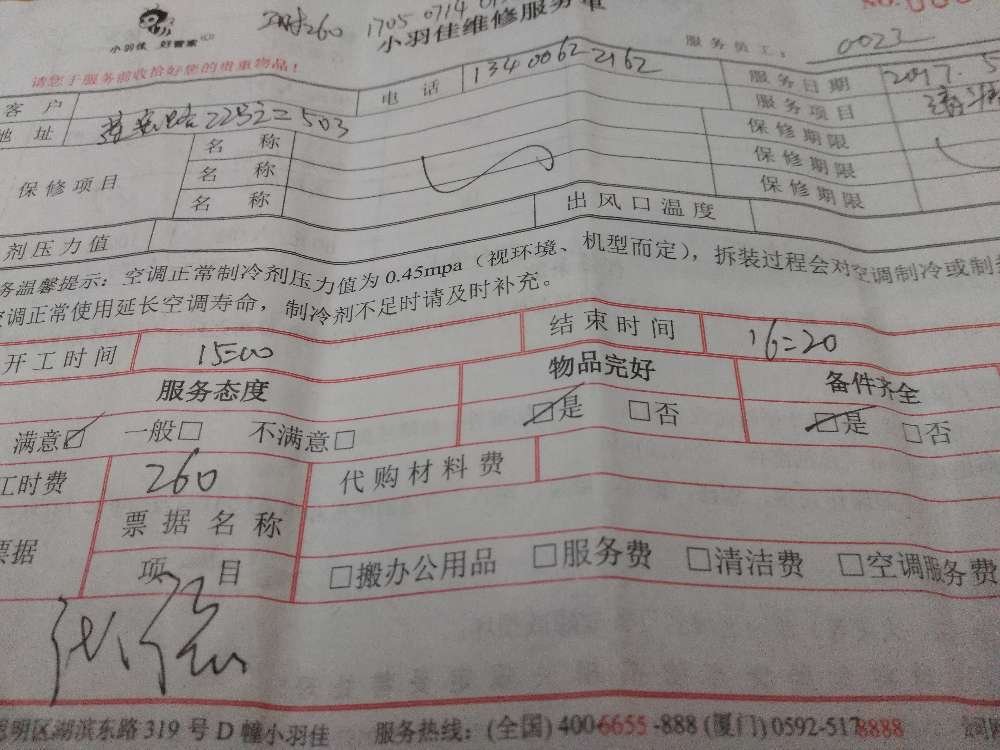 小羽佳 好管家
260 1705 0714
小羽佳维修服务单
NO.
请您于服务前收拾好您的贵重物品！
服务员工： 0023
客户 电话 13400622162 服务日期 2017.5
地址 2252=503 服务项目
保修项目 名称 保修期限
名称 保修期限
名称 保修期限
剂压力值 出风口温度
务温馨提示：空调正常制冷剂压力值为 0.45mpa（视环境、机型而定），拆装过程会对空调制冷或制热
空调正常使用延长空调寿命，制冷剂不足时请及时补充。
开工时间 15=00 结束时间 16=20
服务态度 物品完好 备件齐全
满意☑ 一般□ 不满意□ ☑是 □否 ☑是 □否
工时费 260 代购材料费
票据 票据名称
项目 □搬办公用品 □服务费 □清洁费 □空调服务费
思明区湖滨东路 319 号 D 幢小羽佳 服务热线：(全国) 400-6655-888 (厦门) 0592-5178888